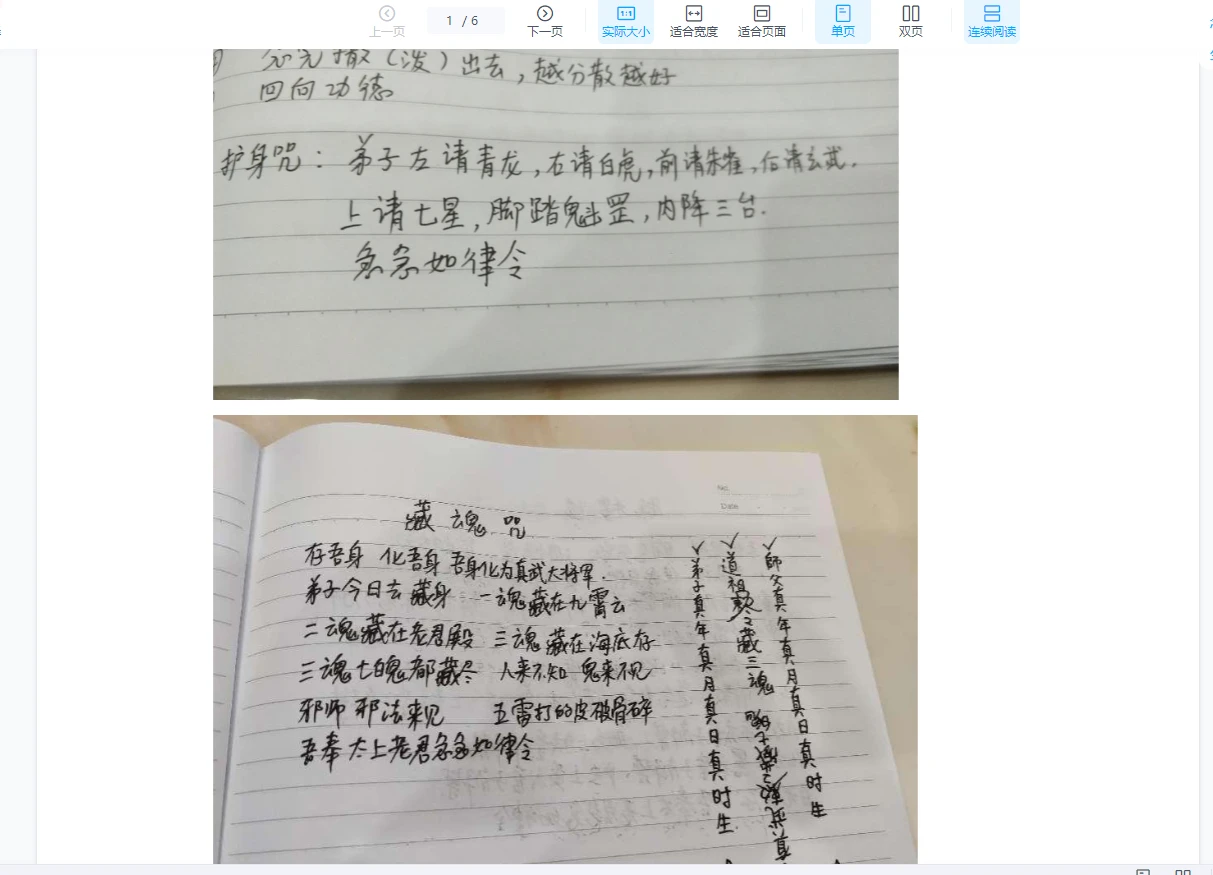 上一页
1 / 6
下一页
1:1
实际大小
适合宽度
适合页面
单页
双页
连续阅读
撒（泼）出去，越分散越好
回向功德
护身咒：弟子左请青龙，右请白虎，前请朱雀，后请玄武.
上请七星，脚踏魁罡，内降三台.
急急如律令
No.
Date
藏魂咒
存吾身 化吾身 吾身化为真武大将军.
弟子今日去藏身 一魂藏在九霄云
二魂藏在老君殿 三魂藏在海底存
三魂七魄都藏尽 人来不知 鬼来不见
邪师邪法来见 五雷打的皮破骨碎
吾奉太上老君急急如律令
師父真年真月真日真时生
道祖 藏三魂
弟子真年真月真日真时生